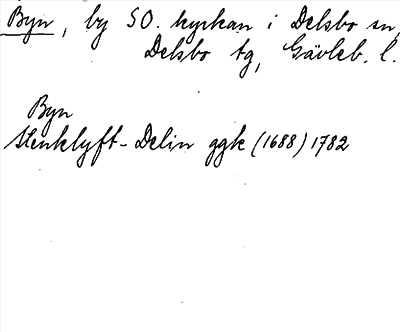 Byn, by SO. kyrkan i Delsbo sn,
Delsbo tg, Gävleb. l.
Byn
Stenklyft-Delin ggk (1688) 1782